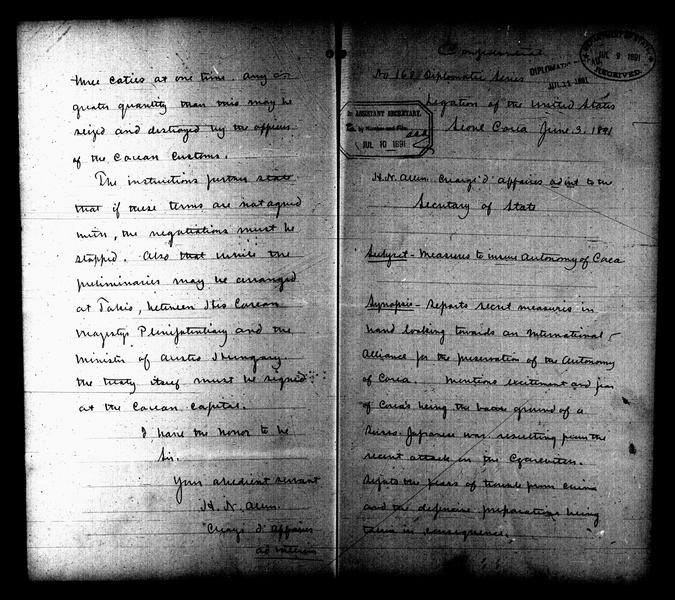 three caties at one time. Any
greater quantity than this may be
seized and destroyed by the officers
of the Corean Customs.
The instructions further state
that if these terms are not agreed
with, the negotiations must be
stopped. Also that while the
preliminaries may be arranged
at Tokio, between His Corean
Majestys Plenipotentiary and the
Minister of Austro Hungary.
the treaty itself must be signed
at the Corean Capital.
I have the honor to be
Sir.
Your obedient servant
H. N. Allen.
"Chargé d' Affaires
ad interim
Confidential
No 168 Diplomatic Series
DIPLOMATIC
JUL 11 1891
DEPARTMENT OF STATE
JUL 9 1891
RECEIVED.
Legation of the United States
Seoul Corea June 3. 1891
ASSISTANT SECRETARY.
JUL 10 1891
H. N. Allen. Chargé d' Affaires ad int to the
Secretary of State
Subject - Measures to insure Autonomy of Corea
Synopsis - Reports secret measures in
hand looking towards an International
Alliance for the preservation of the Autonomy
of Corea. Mentions excitement and fear
of Corea's being the battle ground of a
Russo-Japanese war resulting from the
recent attack on the Czarevitch.
Reports the fears of trouble from China
and the defensive preparations being
taken in consequence.